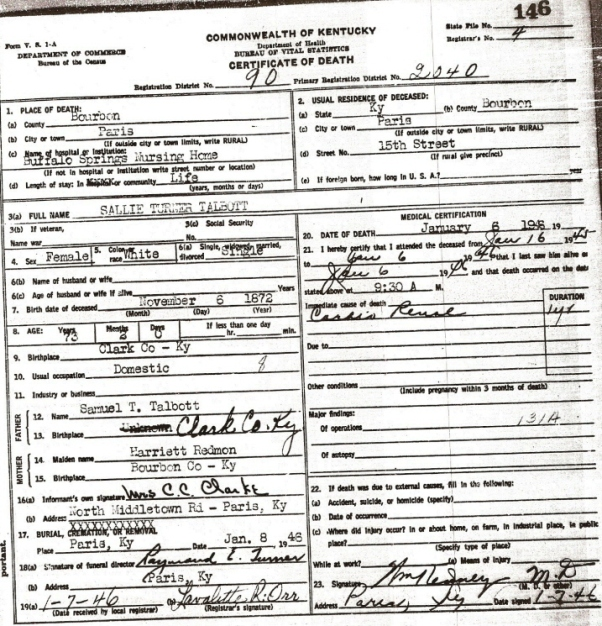 146
COMMONWEALTH OF KENTUCKY
Form V. S. 1-A
DEPARTMENT OF COMMERCE
Bureau of the Census
Department of Health
BUREAU OF VITAL STATISTICS
CERTIFICATE OF DEATH
State File No.
Registrar's No. 4
Registration District No. 90 Primary Registration District No. 2040
1. PLACE OF DEATH:
(a) County Bourbon
(b) City or town Paris
(If outside city or town limits, write RURAL)
(c) Name of hospital or institution:
Buffalo Springs Nursing Home
(If not in hospital or institution write street number or location)
(d) Length of stay: In or community Life
(years, months or days)
2. USUAL RESIDENCE OF DECEASED:
(a) State Ky (b) County Bourbon
(c) City or town Paris
(If outside city or town limits, write RURAL)
(d) Street No. 15th Street
(If rural give precinct)
(e) If foreign born, how long in U. S. A.? year
3(a) FULL NAME SALLIE TURNER TALBOTT
3(b) If veteran,
Name war
3(c) Social Security
No.
4. Sex Female 5. Color or race White 6(a) Single, widowed, married, divorced Single
6(b) Name of husband or wife
6(c) Age of husband or wife if alive Years
7. Birth date of deceased November 6 1872
(Month) (Day) (Year)
8. AGE: Years 73 Months 2 Days 0 If less than one day
hr. min.
9. Birthplace Clark Co - Ky
10. Usual occupation Domestic
11. Industry or business
FATHER
12. Name Samuel T. Talbott
13. Birthplace Unknown Clark Co. Ky
MOTHER
14. Maiden name Harriett Redmon
15. Birthplace Bourbon Co - Ky
16(a) Informant's own signature Mrs C. C. Clarke
(b) Address North Middletown Rd - Paris, Ky
XXXXXXXXXXXX
17. BURIAL, CREMATION, OR REMOVAL
Place Paris, Ky Date Jan. 8 1946
18(a) Signature of funeral director Raymond E. Turner
(b) Address Paris, Ky
19(a) 1-7-46 (b) Lavalette R. Orr
(Date received by local registrar) (Registrar's signature)
MEDICAL CERTIFICATION
20. DATE OF DEATH January 6 19
21. I hereby certify that I attended the deceased from Jan 16 1945
to Jan 6 1946 that I last saw him alive on
Jan 6 1946 and that death occurred on the date
stated above at 9:30 A M.
Immediate cause of death
DURATION
Cardio 1yr
Due to
Other conditions
(Include pregnancy within 3 months of death)
Major findings:
Of operations 131A
Of autopsy
22. If death was due to external causes, fill in the following:
(a) Accident, suicide, or homicide (specify)
(b) Date of occurrence
(c) Where did injury occur? in or about home, on farm, in industrial place, in public
place?
(Specify type of place)
While at work? (e) Means of injury
23. Signature M. D
(M. D. or other)
Address Paris, Ky Date signed 1-7-46
portant.